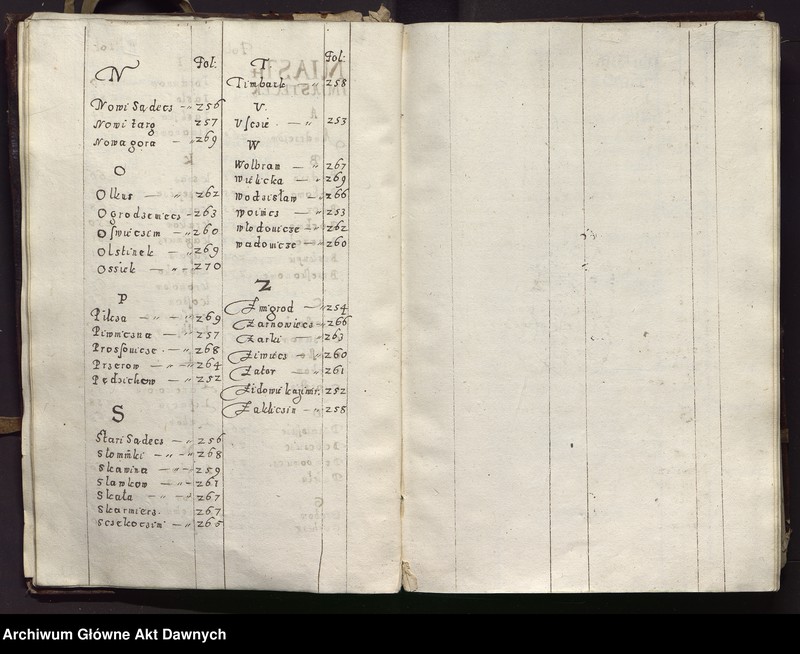 N Fol:
Nowi Sądecs - " 256
Nowi targ 257
Nowagora - " 269
O
Olkus - " 262
Ogrodzeniecs - 263
Oswiecsem - " 260
Olstinek - " 269
Ossiek - " - 270
P
Pilcsa - " - " 269
Piwnicsna - " 257
Prossowicse - " 268
Prserow - " - 264
Pędsichow - " 252
S
Stari Sądecs - " 256
Slomniki - " - " 268
Skawina - " - 259
Slawkow - " 261
Skala - " - 267
Skarmiers. 267
Scsekocsini - " 265
T Fol:
Timbark " 258
V
Vscsié - " 253
W
Wolbram - " 267
Wielicka - " 269
Wodsislaw - " 266
Woinics - " 253
Wlodowicse - " 262
Wadowicse - " 260
Z
Zmigrod - " 254
Zarnowiecs - " 266
Zarki - " 263
Ziwiecs - " 260
Zator - " 261
Zidowi kazimir. 252
Zaklicsin - " 258
Archiwum Główne Akt Dawnych